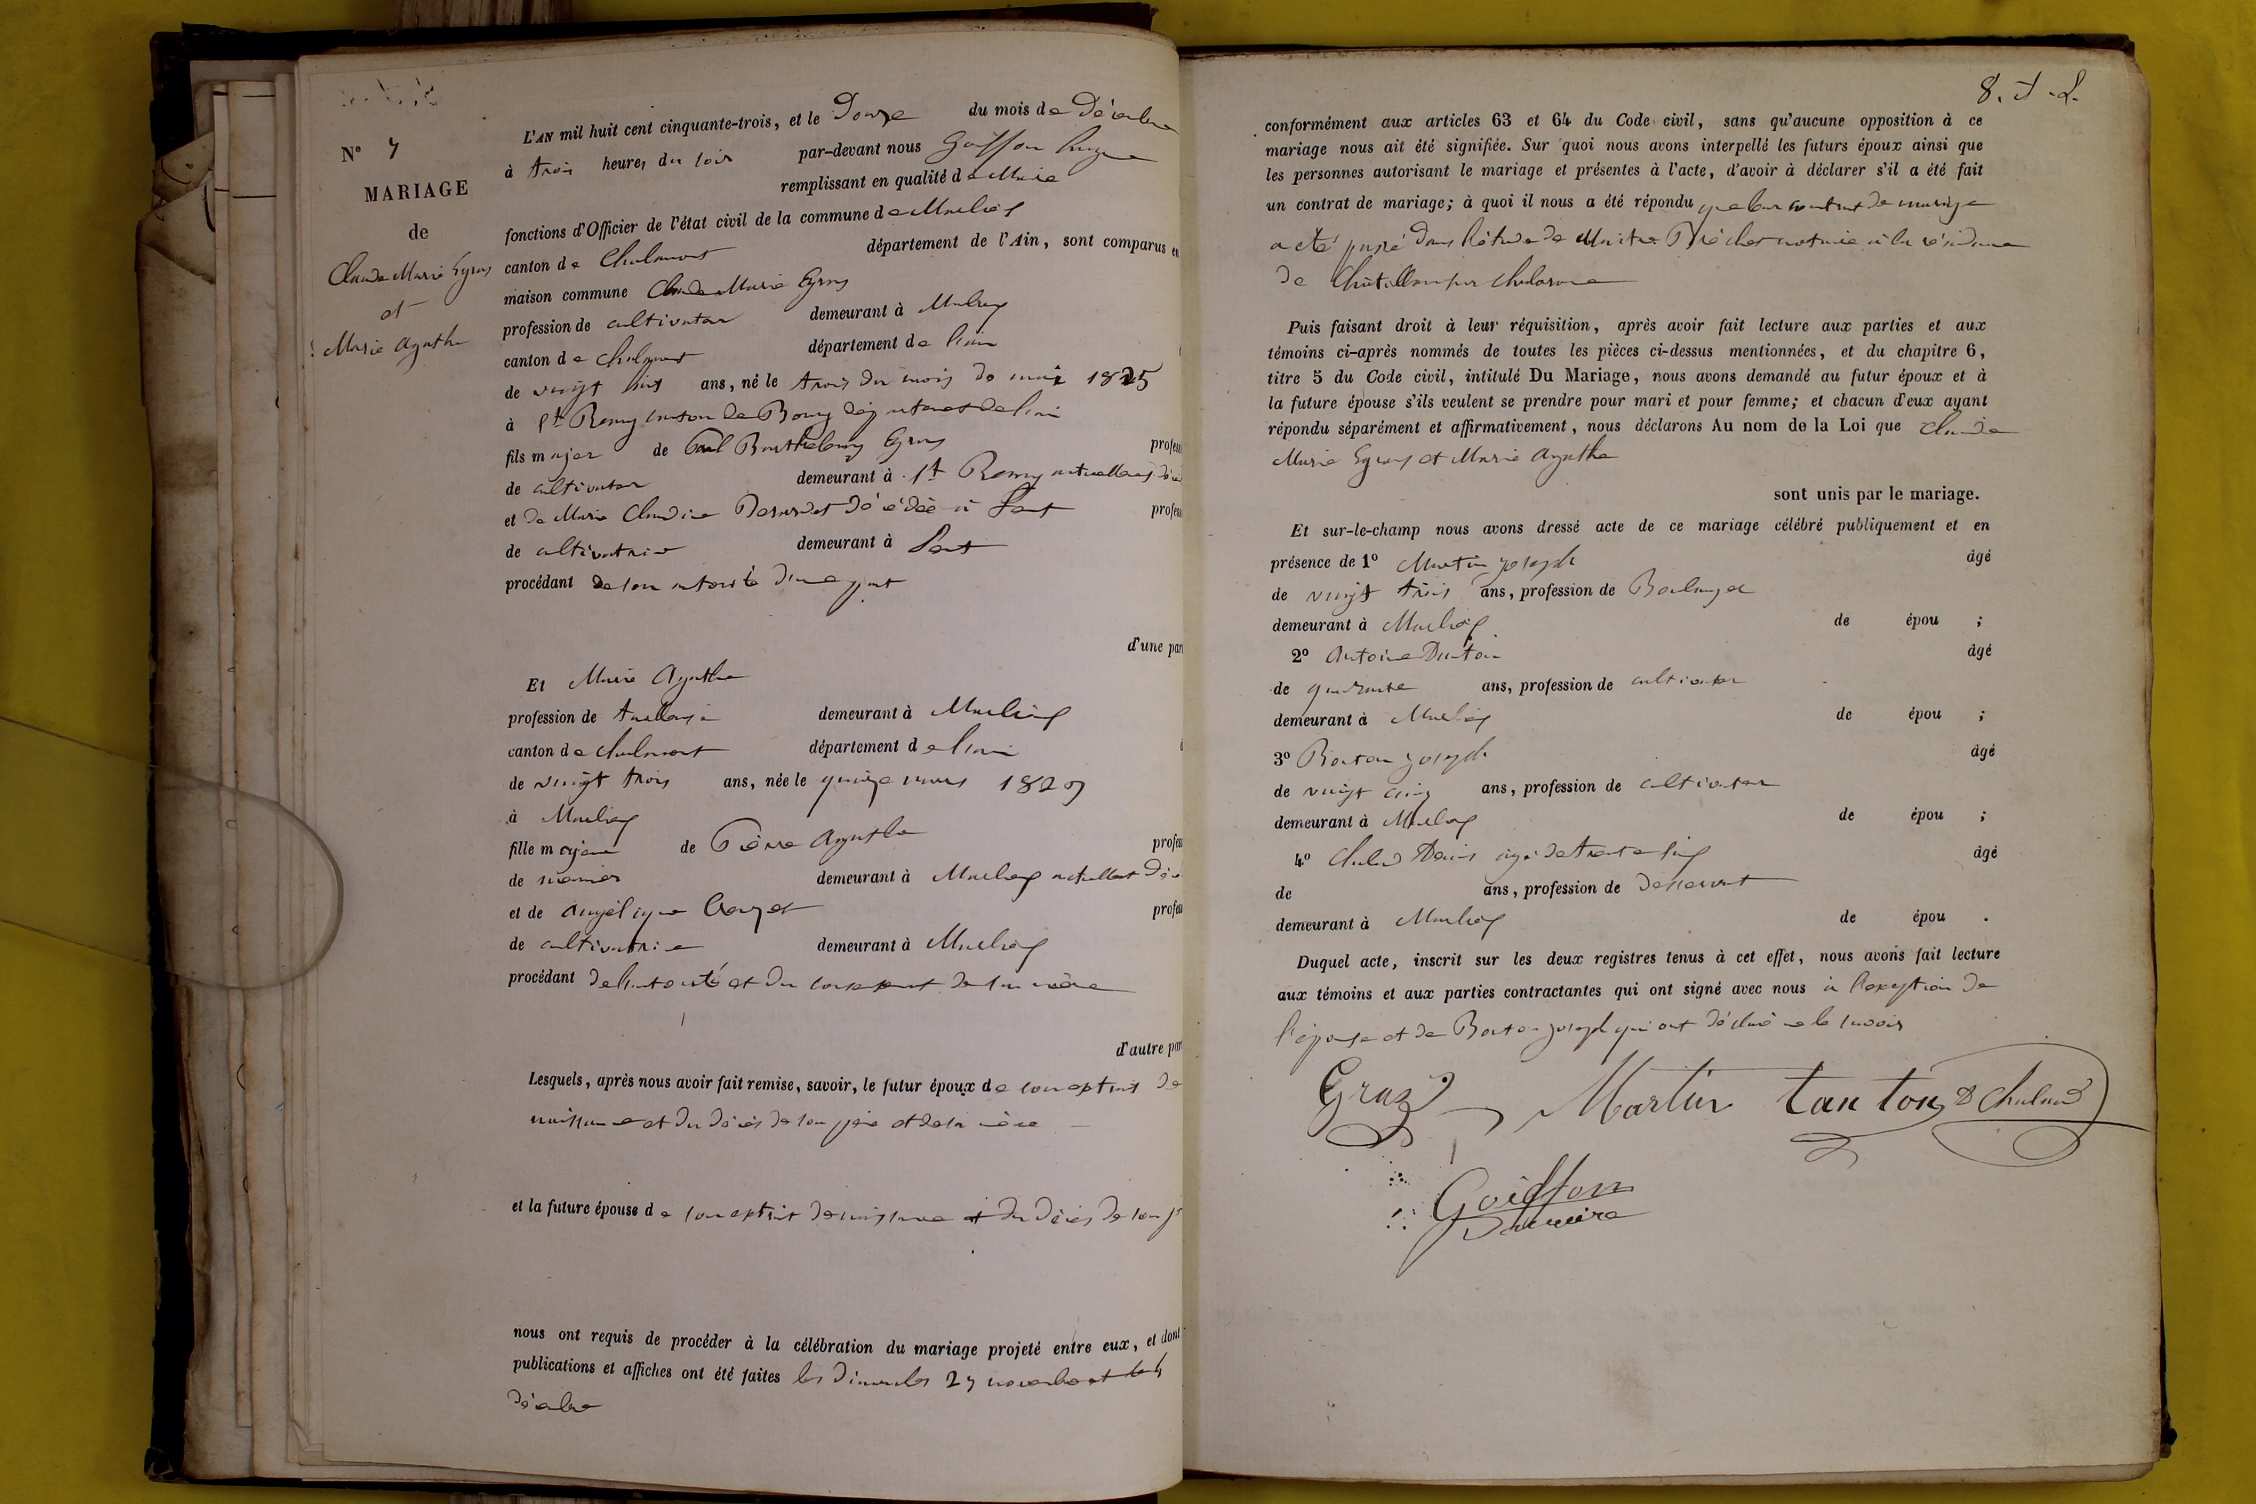 N° 7
MARIAGE
de
Claude Marie Egras
et
Marie Agathe
L'AN mil huit cent cinquante-trois, et le Douze du mois de Décembre
à trois heures du soir par-devant nous Goiffon
remplissant en qualité de Maire
fonctions d'Officier de l'état civil de la commune de Marlieux
canton de Chalamont département de l'Ain, sont comparus en
maison commune Claude Marie Egras
profession de cultivateur demeurant à Marlieux
canton de chalamont département de l'ain
de vingt huit ans, né le trois du mois de mai 1825
à St Remy canton de Bourg département de l'ain
fils majeur de Barthelemy Egras profess
de cultivateur demeurant à St Remy actuellement décé
et de Marie Claudine décédée à profess
de cultivatrice demeurant à
procédant de son autorité d'une part
d'une par
Et Marie Agathe
profession de tailleuse demeurant à Marlieux
canton de chalamont département de l'ain
de vingt trois ans, née le quinze mars 1829
à Marlieux
fille majeure de Pierre Agathe profess
de demeurant à Marlieux actuellement décé
et de Angélique Crozet profess
de cultivatrice demeurant à Marlieux
procédant de l'autorité et du consentement de sa mère
d'autre par
Lesquels, après nous avoir fait remise, savoir, le futur époux de son extrait de
naissance et du décès de son père et de sa mère
et la future épouse de son extrait de naissance et du décès de son p
nous ont requis de procéder à la célébration du mariage projeté entre eux, et dont
publications et affiches ont été faites les dimanches 27 novembre et le 4
décembre
8.
conformément aux articles 63 et 64 du Code civil, sans qu'aucune opposition à ce
mariage nous ait été signifiée. Sur quoi nous avons interpellé les futurs époux ainsi que
les personnes autorisant le mariage et présentes à l'acte, d'avoir à déclarer s'il a été fait
un contrat de mariage; à quoi il nous a été répondu que leur contrat de mariage
a été passé dans l'étude de Maitre notaire à la résidence
de Châtillon sur chalaronne
Puis faisant droit à leur réquisition, après avoir fait lecture aux parties et aux
témoins ci-après nommés de toutes les pièces ci-dessus mentionnées, et du chapitre 6,
titre 5 du Code civil, intitulé Du Mariage, nous avons demandé au futur époux et à
la future épouse s'ils veulent se prendre pour mari et pour femme; et chacun d'eux ayant
répondu séparément et affirmativement, nous déclarons Au nom de la Loi que Claude
Marie Egras et Marie Agathe
sont unis par le mariage.
Et sur-le-champ nous avons dressé acte de ce mariage célébré publiquement et en
présence de 1° Martin joseph âgé
de vingt trois ans, profession de Boulanger
demeurant à Marlieux de épou ;
2° Antoine Tanton âgé
de quarante ans, profession de cultivateur
demeurant à Marlieux de épou ;
3° Bouton joseph âgé
de vingt cinq ans, profession de cultivateur
demeurant à Marlieux de épou ;
4° Chaland Denis âgé de trente cinq âgé
de ans, profession de desservant
demeurant à Marlieux de épou .
Duquel acte, inscrit sur les deux registres tenus à cet effet, nous avons fait lecture
aux témoins et aux parties contractantes qui ont signé avec nous à l'exception de
l'épouse et de Bouton joseph qui ont déclaré ne le savoir
Graz Martin tanton D Chaland
Goiffon
maire